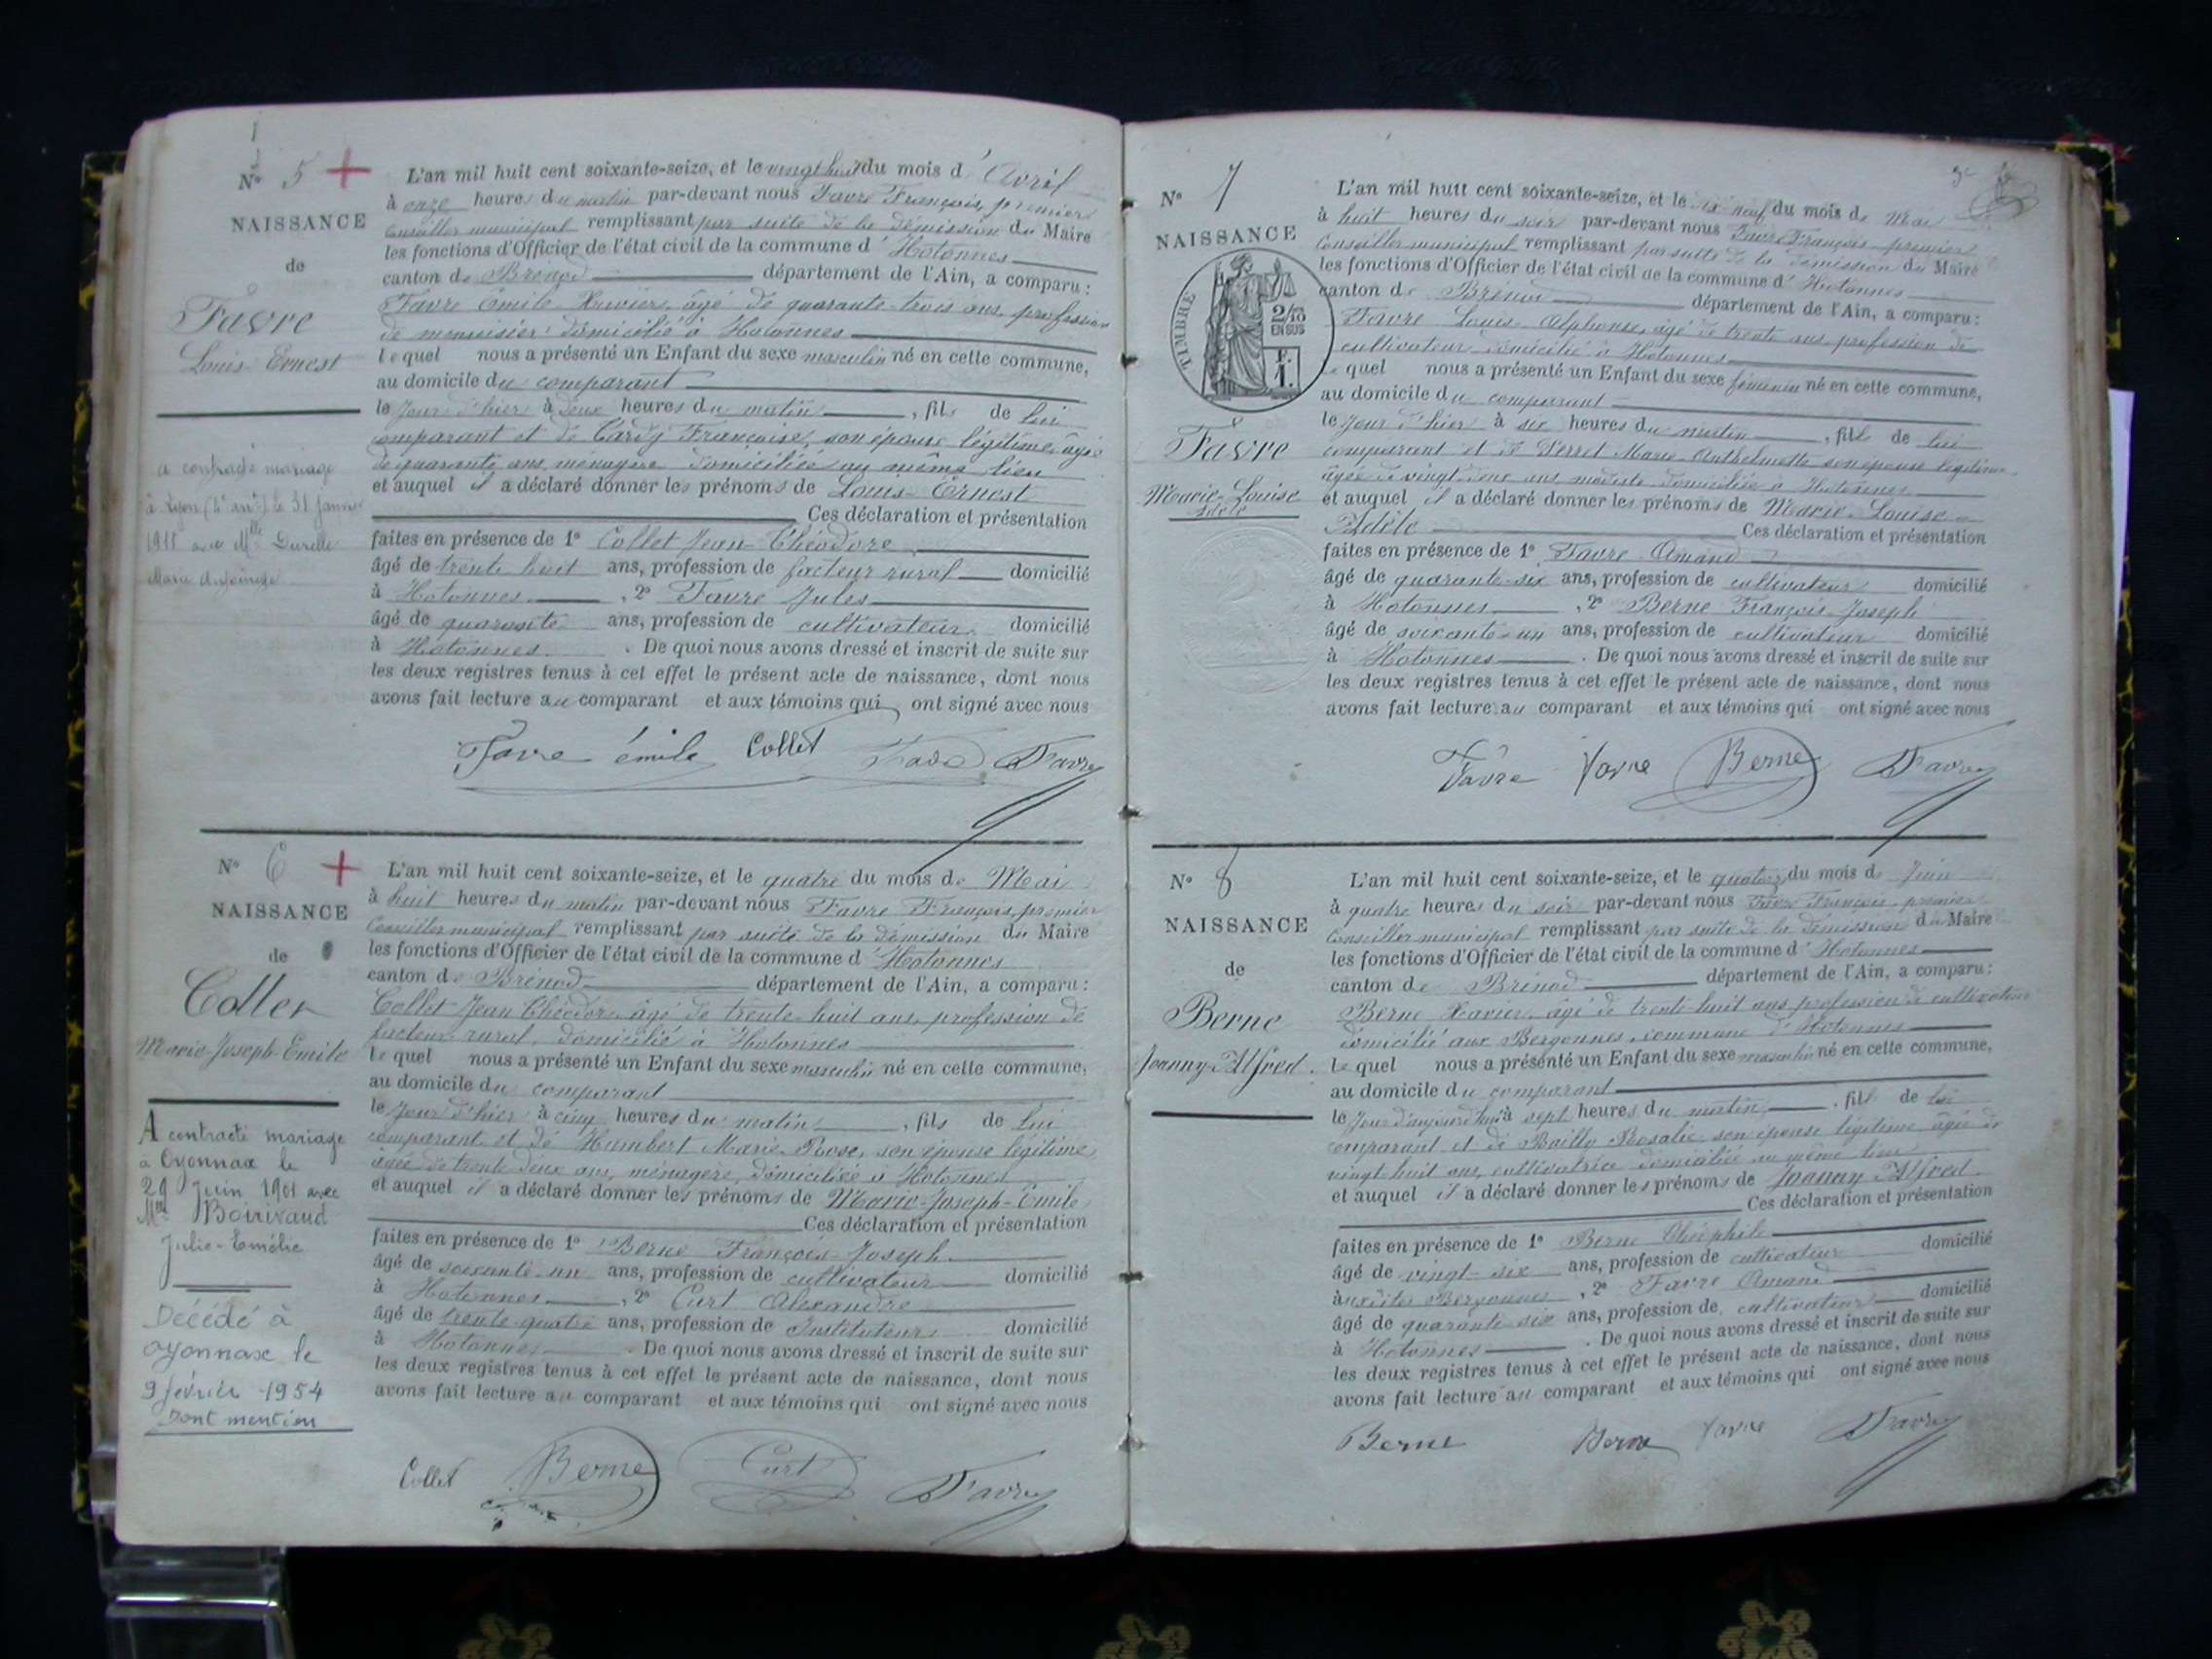 N° 5 +
NAISSANCE
de
Favre
Louis-Ernest
a contracté mariage
à Lyon le 31 Janvier
1911 avec Mlle
Marie
L'an mil huit cent soixante-seize, et le vingt huit du mois d'Avril
à onze heures du matin par-devant nous Favre François, premier
Conseiller municipal remplissant par suite de la démission du Maire
les fonctions d'Officier de l'état civil de la commune d'Hotonnes
canton de Brenod département de l'Ain, a comparu :
Favre Émile Xavier, âgé de quarante-trois ans, profession
de menuisier domicilié à Hotonnes
lequel nous a présenté un Enfant du sexe masculin né en cette commune,
au domicile du comparant
le jour d'hier à deux heures du matin, fils de lui
comparant et de Cardy Françoise, son épouse légitime âgée
de quarante ans, ménagère domiciliée au même lieu
et auquel il a déclaré donner les prénoms de Louis-Ernest
Ces déclaration et présentation
faites en présence de 1° Collet Jean-Théodore
âgé de trente huit ans, profession de facteur rural domicilié
à Hotonnes, 2° Favre Jules
âgé de quarante ans, profession de cultivateur domicilié
à Hotonnes. De quoi nous avons dressé et inscrit de suite sur
les deux registres tenus à cet effet le présent acte de naissance, dont nous
avons fait lecture au comparant et aux témoins qui ont signé avec nous
Favre émile Collet Favre Favre
N° 6 +
NAISSANCE
de
Collet
Marie-Joseph-Emile
A contracté mariage
à Oyonnax le
29 Juin 1901 avec
Mlle Boirivaud
Julie-Emélie
Décédé à
Oyonnax le
9 février 1954
Dont mention
L'an mil huit cent soixante-seize, et le quatre du mois de Mai
à huit heures du matin par-devant nous Favre François, premier
Conseiller municipal remplissant par suite de la démission du Maire
les fonctions d'Officier de l'état civil de la commune d'Hotonnes
canton de Brénod département de l'Ain, a comparu :
Collet Jean Théodore âgé de trente-huit ans, profession de
facteur rural, domicilié à Hotonnes
lequel nous a présenté un Enfant du sexe masculin né en cette commune,
au domicile du comparant
le jour d'hier à cinq heures du matin, fils de lui
comparant et de Humbert Marie Rose, son épouse légitime,
âgée de trente deux ans, ménagère, domiciliée à Hotonnes
et auquel il a déclaré donner les prénoms de Marie-Joseph-Emile
Ces déclaration et présentation
faites en présence de 1° Berne François-Joseph
âgé de soixante-un ans, profession de cultivateur domicilié
à Hotonnes, 2° Curt Alexandre
âgé de trente-quatre ans, profession de Instituteur domicilié
à Hotonnes. De quoi nous avons dressé et inscrit de suite sur
les deux registres tenus à cet effet le présent acte de naissance, dont nous
avons fait lecture au comparant et aux témoins qui ont signé avec nous
Collet Berne Curt Favre
N° 7
NAISSANCE
TIMBRE
2/10
EN SUS
F.
1.
Favre
Marie-Louise
Adèle
L'an mil huit cent soixante-seize, et le dix neuf du mois de Mai
à huit heures du soir par-devant nous Favre François premier
Conseiller municipal remplissant par suite de la démission du Maire
les fonctions d'Officier de l'état civil de la commune d'Hotonnes
canton de Brénod département de l'Ain, a comparu :
Favre Louis-Alphonse, âgé de trente ans profession de
cultivateur domicilié à Hotonnes
lequel nous a présenté un Enfant du sexe féminin né en cette commune,
au domicile du comparant
le jour d'hier à six heures du matin, fille de lui
comparant et de Perret Marie-Anthelmette son épouse légitime
âgée de vingt deux ans modiste domiciliée à Hotonnes
et auquel il a déclaré donner les prénoms de Marie-Louise-
Adèle Ces déclaration et présentation
faites en présence de 1° Favre Amand
âgé de quarante-six ans, profession de cultivateur domicilié
à Hotonnes, 2° Berne François-Joseph
âgé de soixante-un ans, profession de cultivateur domicilié
à Hotonnes. De quoi nous avons dressé et inscrit de suite sur
les deux registres tenus à cet effet le présent acte de naissance, dont nous
avons fait lecture au comparant et aux témoins qui ont signé avec nous
Favre Favre Berne Favre
N° 8
NAISSANCE
de
Berne
Joanny-Alfred.
L'an mil huit cent soixante-seize, et le quatorze du mois de Juin
à quatre heures du soir par-devant nous Favre François premier
Conseiller municipal remplissant par suite de la démission du Maire
les fonctions d'Officier de l'état civil de la commune d'Hotonnes
canton de Brénod département de l'Ain, a comparu :
Berne Xavier, âgé de trente-huit ans profession de cultivateur
domicilié aux Bergonnes, commune d'Hotonnes
lequel nous a présenté un Enfant du sexe masculin né en cette commune,
au domicile du comparant
le jour d'aujourd'hui à sept heures du matin, fils de lui
comparant et de Bailly Rosalie son épouse légitime âgée de
vingt-huit ans, cultivatrice domiciliée au même lieu
et auquel il a déclaré donner les prénoms de Joanny Alfred
Ces déclaration et présentation
faites en présence de 1° Berne Théophile
âgé de vingt-six ans, profession de cultivateur domicilié
aux dites Bergonnes, 2° Favre Amand
âgé de quarante six ans, profession de cultivateur domicilié
à Hotonnes. De quoi nous avons dressé et inscrit de suite sur
les deux registres tenus à cet effet le présent acte de naissance, dont nous
avons fait lecture au comparant et aux témoins qui ont signé avec nous
Berne Berne Favre Favre